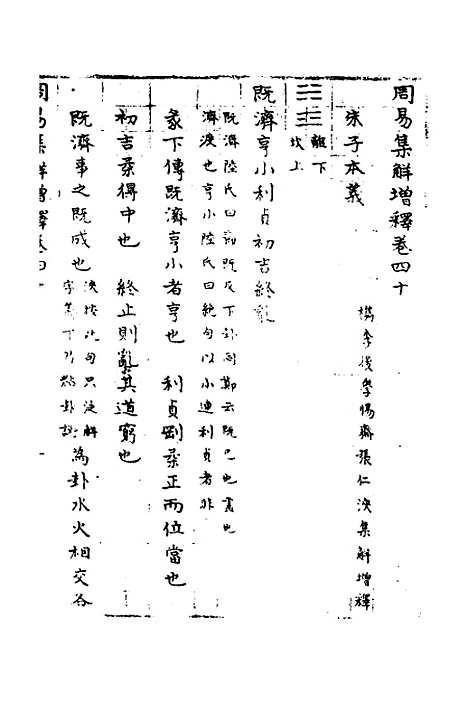 周易集解增釋卷四十
檇李後學惕齋張仁浹集解增釋
朱子本義
離下
坎上
既濟亨小利貞初吉終亂
既濟陸氏曰節既反下卦同鄭云既已也盡也
濟渡也亨小陸氏曰絕句以小連利貞者非
彖下傳既濟亨小者亨也 利貞剛柔正而位當也
初吉柔得中也 終止則亂其道窮也
既濟事之既成也
浹按此句只淺解
為卦水火相交各
周易集解增釋卷四十